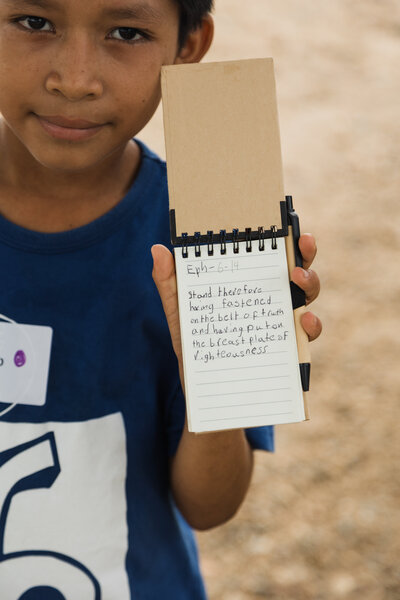 Eph-6-14
Stand therefore
having fastened
on the belt of truth
and having put on
the breast plate of
righteousness